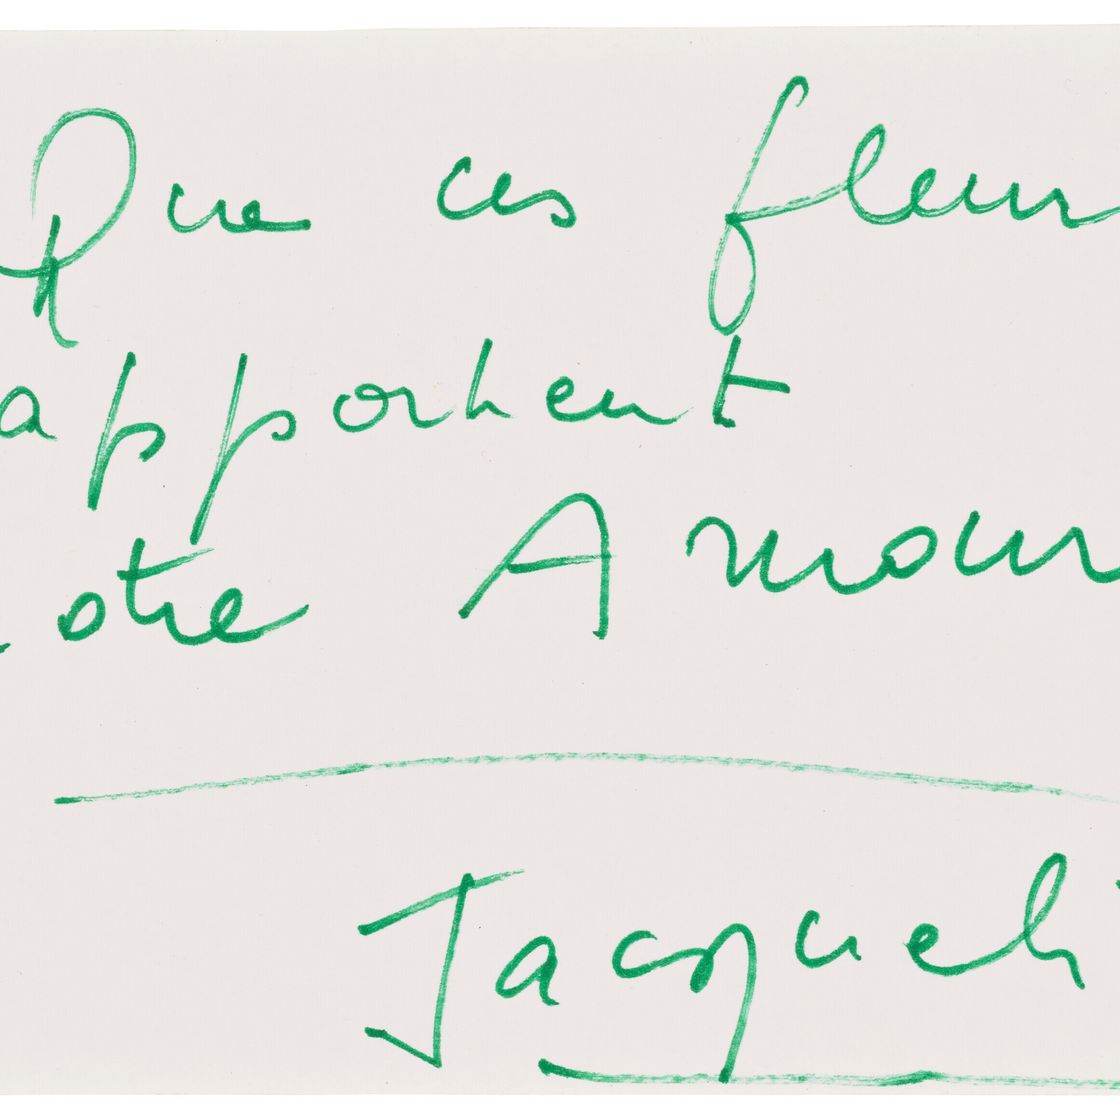 Que ces fleur
apportent
otre Amour
Jacqueli